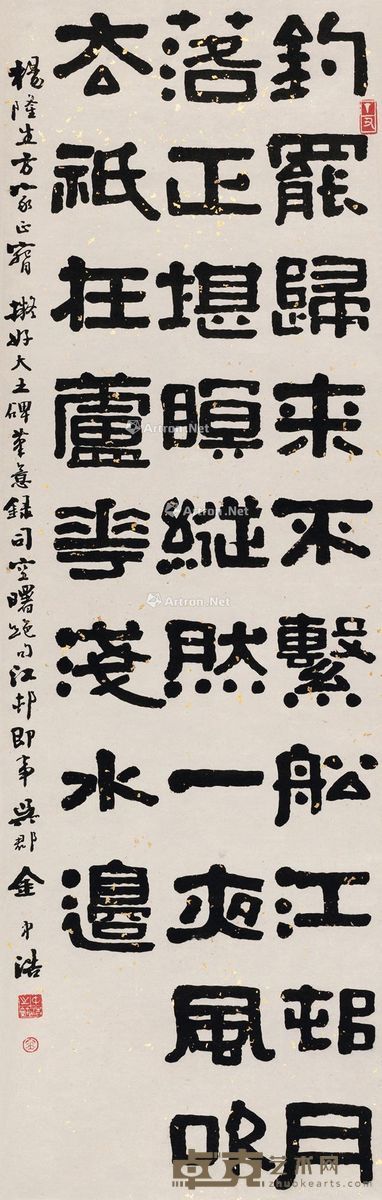 釣罷歸來不繫船江邨月
落正堪瞑縱然一夜風吹
去祇在蘆花淺水邊
楊隆生方家正 擬好大王碑筆意錄司空曙絕句江邨即事 吳郡金中浩
Artron.Net
Artron.Net
卓克艺术网
www.zhuokearts.com